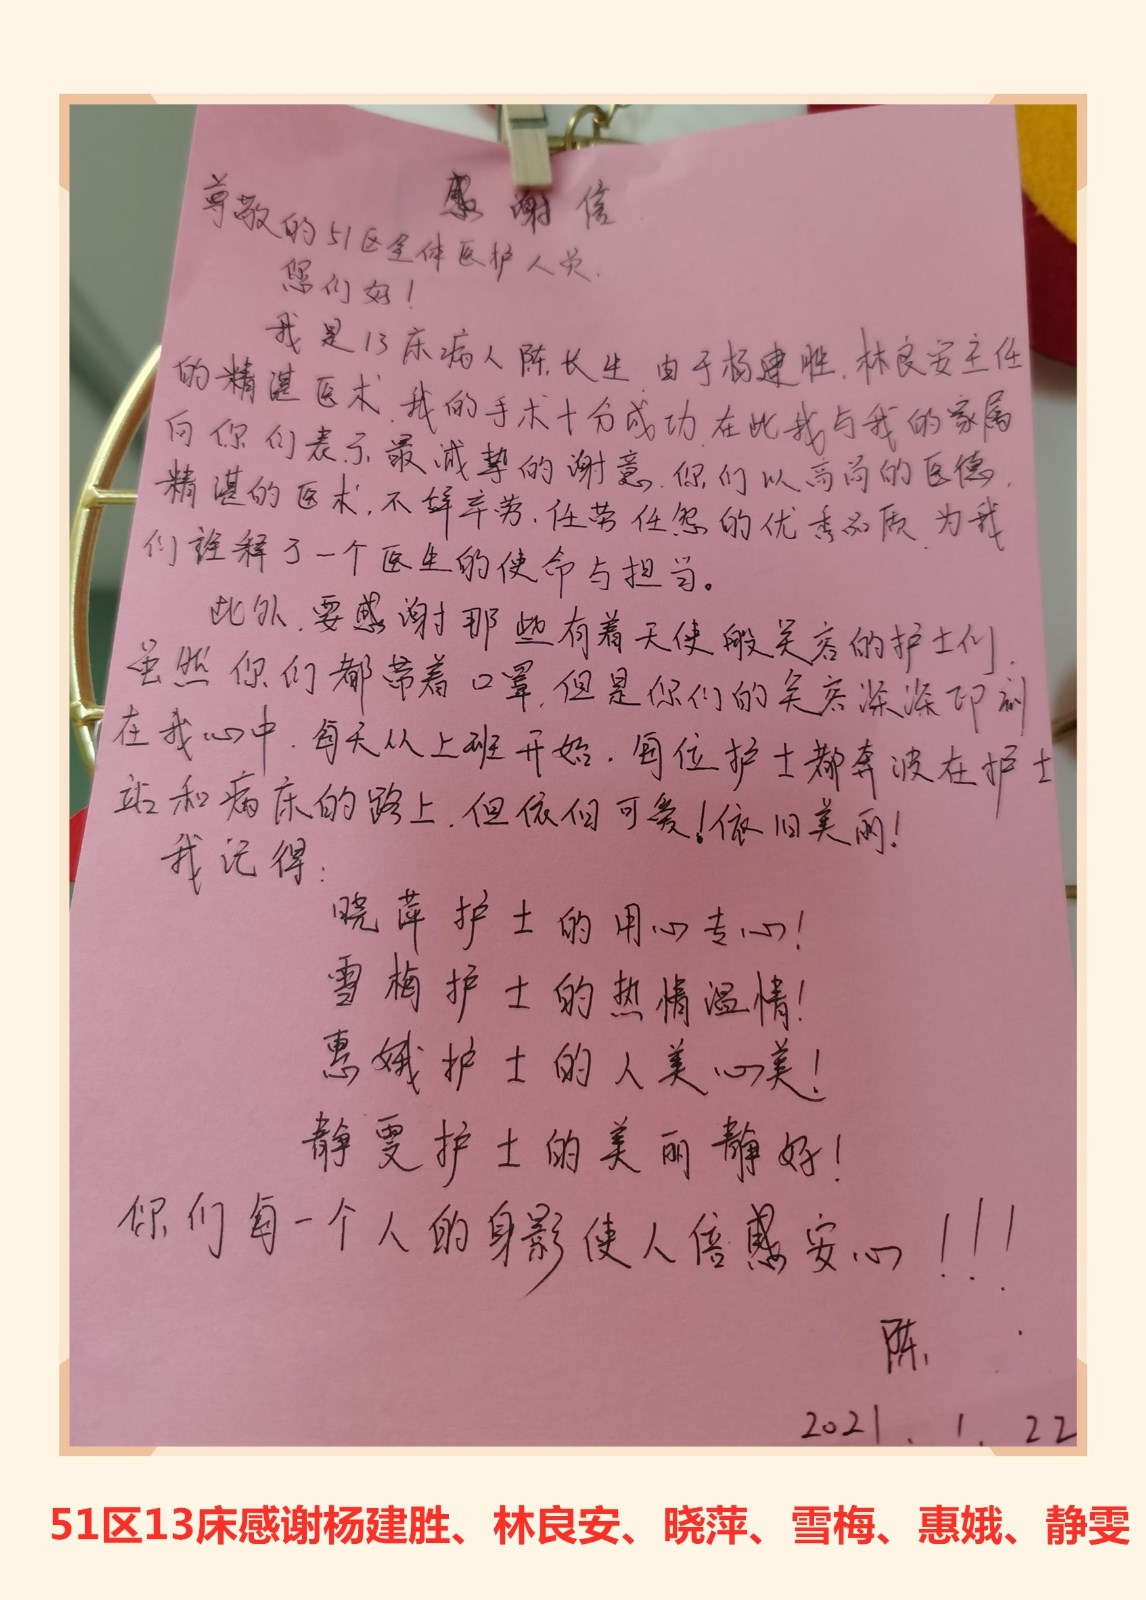 感谢信
尊敬的51区全体医护人员.
您们好!
我是13床病人陈长生.由于杨建胜.林良安主任
的精湛医术.我的手术十分成功.在此我与我的家属
向你们表示最诚挚的谢意.你们以高尚的医德.
精湛的医术.不辞辛劳.任劳任怨的优秀品质.为我
们诠释了一个医生的使命与担当。
此外.要感谢那些有着天使般笑容的护士们.
虽然你们都带着口罩.但是你们的笑容深深印刻
在我心中.每天从上班开始.每位护士都奔波在护士
站和病床的路上.但依旧可爱!依旧美丽!
我记得:
晓萍护士的用心专心!
雪梅护士的热情温情!
惠娥护士的人美心美!
静雯护士的美丽静好!
你们每一个人的身影使人倍感安心!!!
陈.
2021.1.22
51区13床感谢杨建胜、林良安、晓萍、雪梅、惠娥、静雯